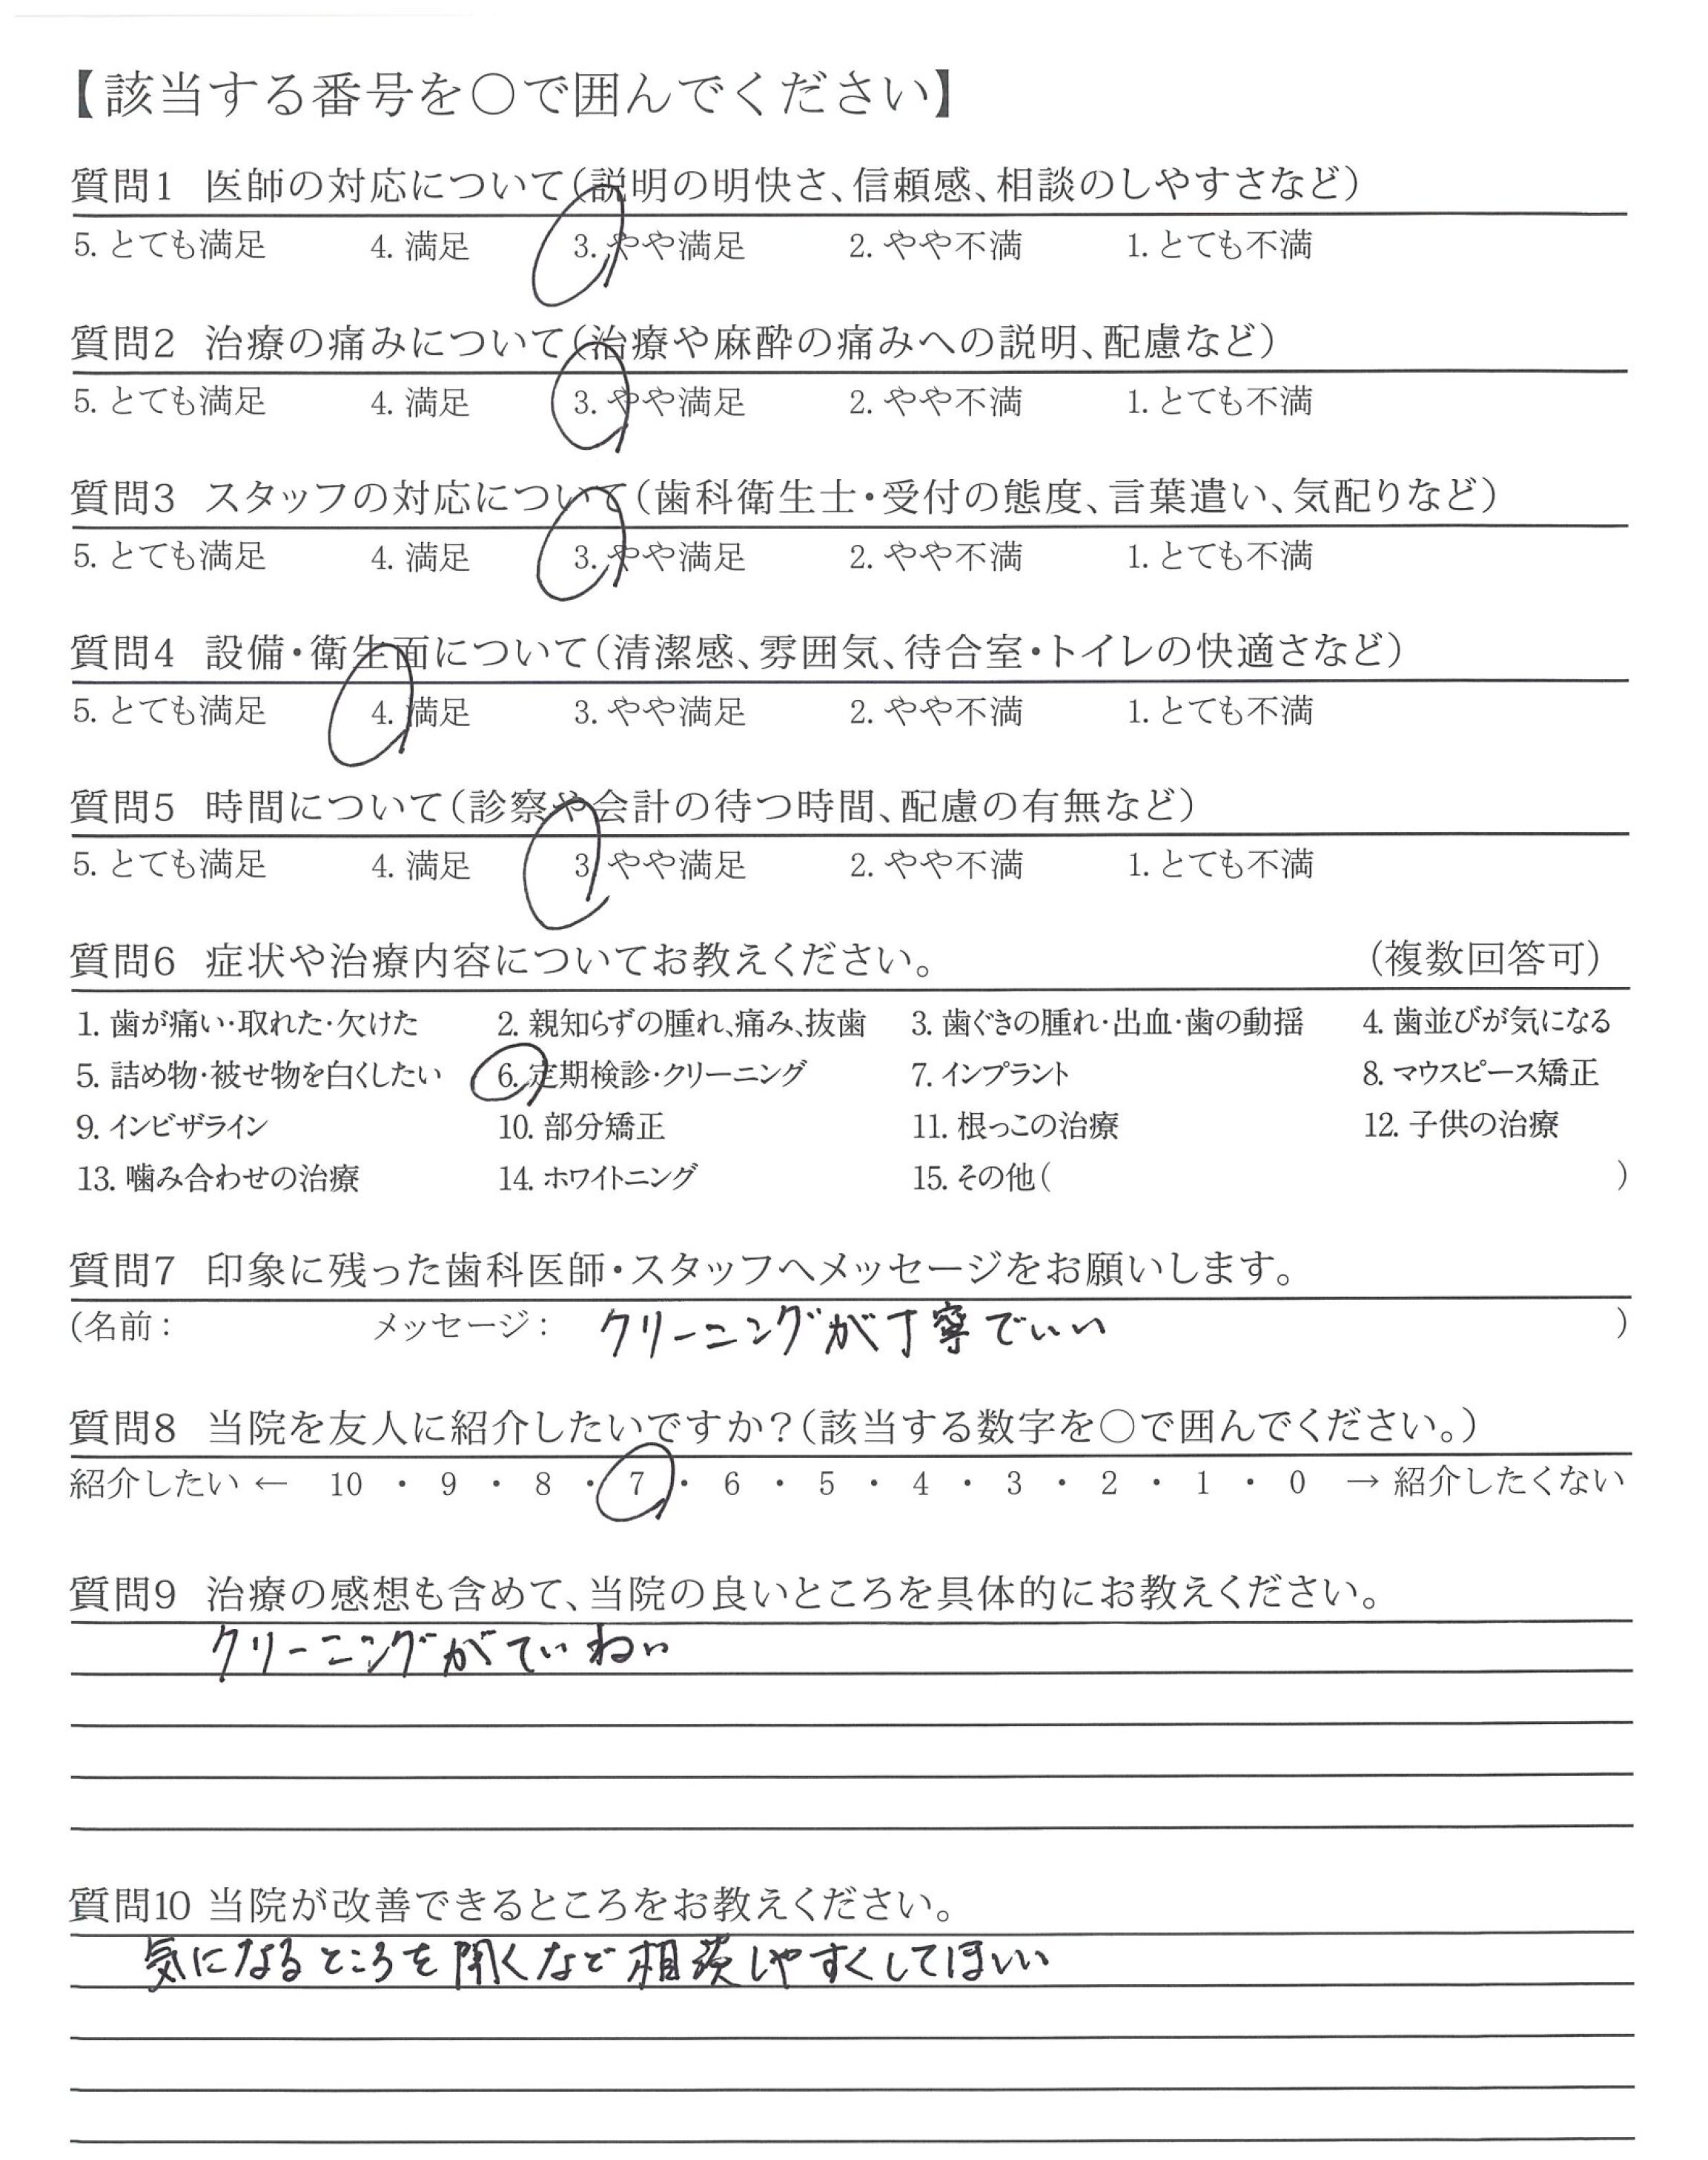 【該当する番号を○で囲んでください】
質問1 医師の対応について(説明の明快さ、信頼感、相談のしやすさなど)
5. とても満足 4. 満足 3. やや満足 2. やや不満 1. とても不満
質問2 治療の痛みについて(治療や麻酔の痛みへの説明、配慮など)
5. とても満足 4. 満足 3. やや満足 2. やや不満 1. とても不満
質問3 スタッフの対応について(歯科衛生士・受付の態度、言葉遣い、気配りなど)
5. とても満足 4. 満足 3. やや満足 2. やや不満 1. とても不満
質問4 設備・衛生面について(清潔感、雰囲気、待合室・トイレの快適さなど)
5. とても満足 4. 満足 3. やや満足 2. やや不満 1. とても不満
質問5 時間について(診察や会計の待つ時間、配慮の有無など)
5. とても満足 4. 満足 3. やや満足 2. やや不満 1. とても不満
質問6 症状や治療内容についてお教えください。 (複数回答可)
1. 歯が痛い・取れた・欠けた 2. 親知らずの腫れ、痛み、抜歯 3. 歯ぐきの腫れ・出血・歯の動揺 4. 歯並びが気になる
5. 詰め物・被せ物を白くしたい 6. 定期検診・クリーニング 7. インプラント 8. マウスピース矯正
9. インビザライン 10. 部分矯正 11. 根っこの治療 12. 子供の治療
13. 噛み合わせの治療 14. ホワイトニング 15. その他( )
質問7 印象に残った歯科医師・スタッフへメッセージをお願いします。
(名前: メッセージ: クリーニングが丁寧でいい )
質問8 当院を友人に紹介したいですか?(該当する数字を○で囲んでください。)
紹介したい ← 10 ・ 9 ・ 8 ・ 7 ・ 6 ・ 5 ・ 4 ・ 3 ・ 2 ・ 1 ・ 0 → 紹介したくない
質問9 治療の感想も含めて、当院の良いところを具体的にお教えください。
クリーニングがていねい
質問10 当院が改善できるところをお教えください。
気になるところを聞くなど相談しやすくしてほしい